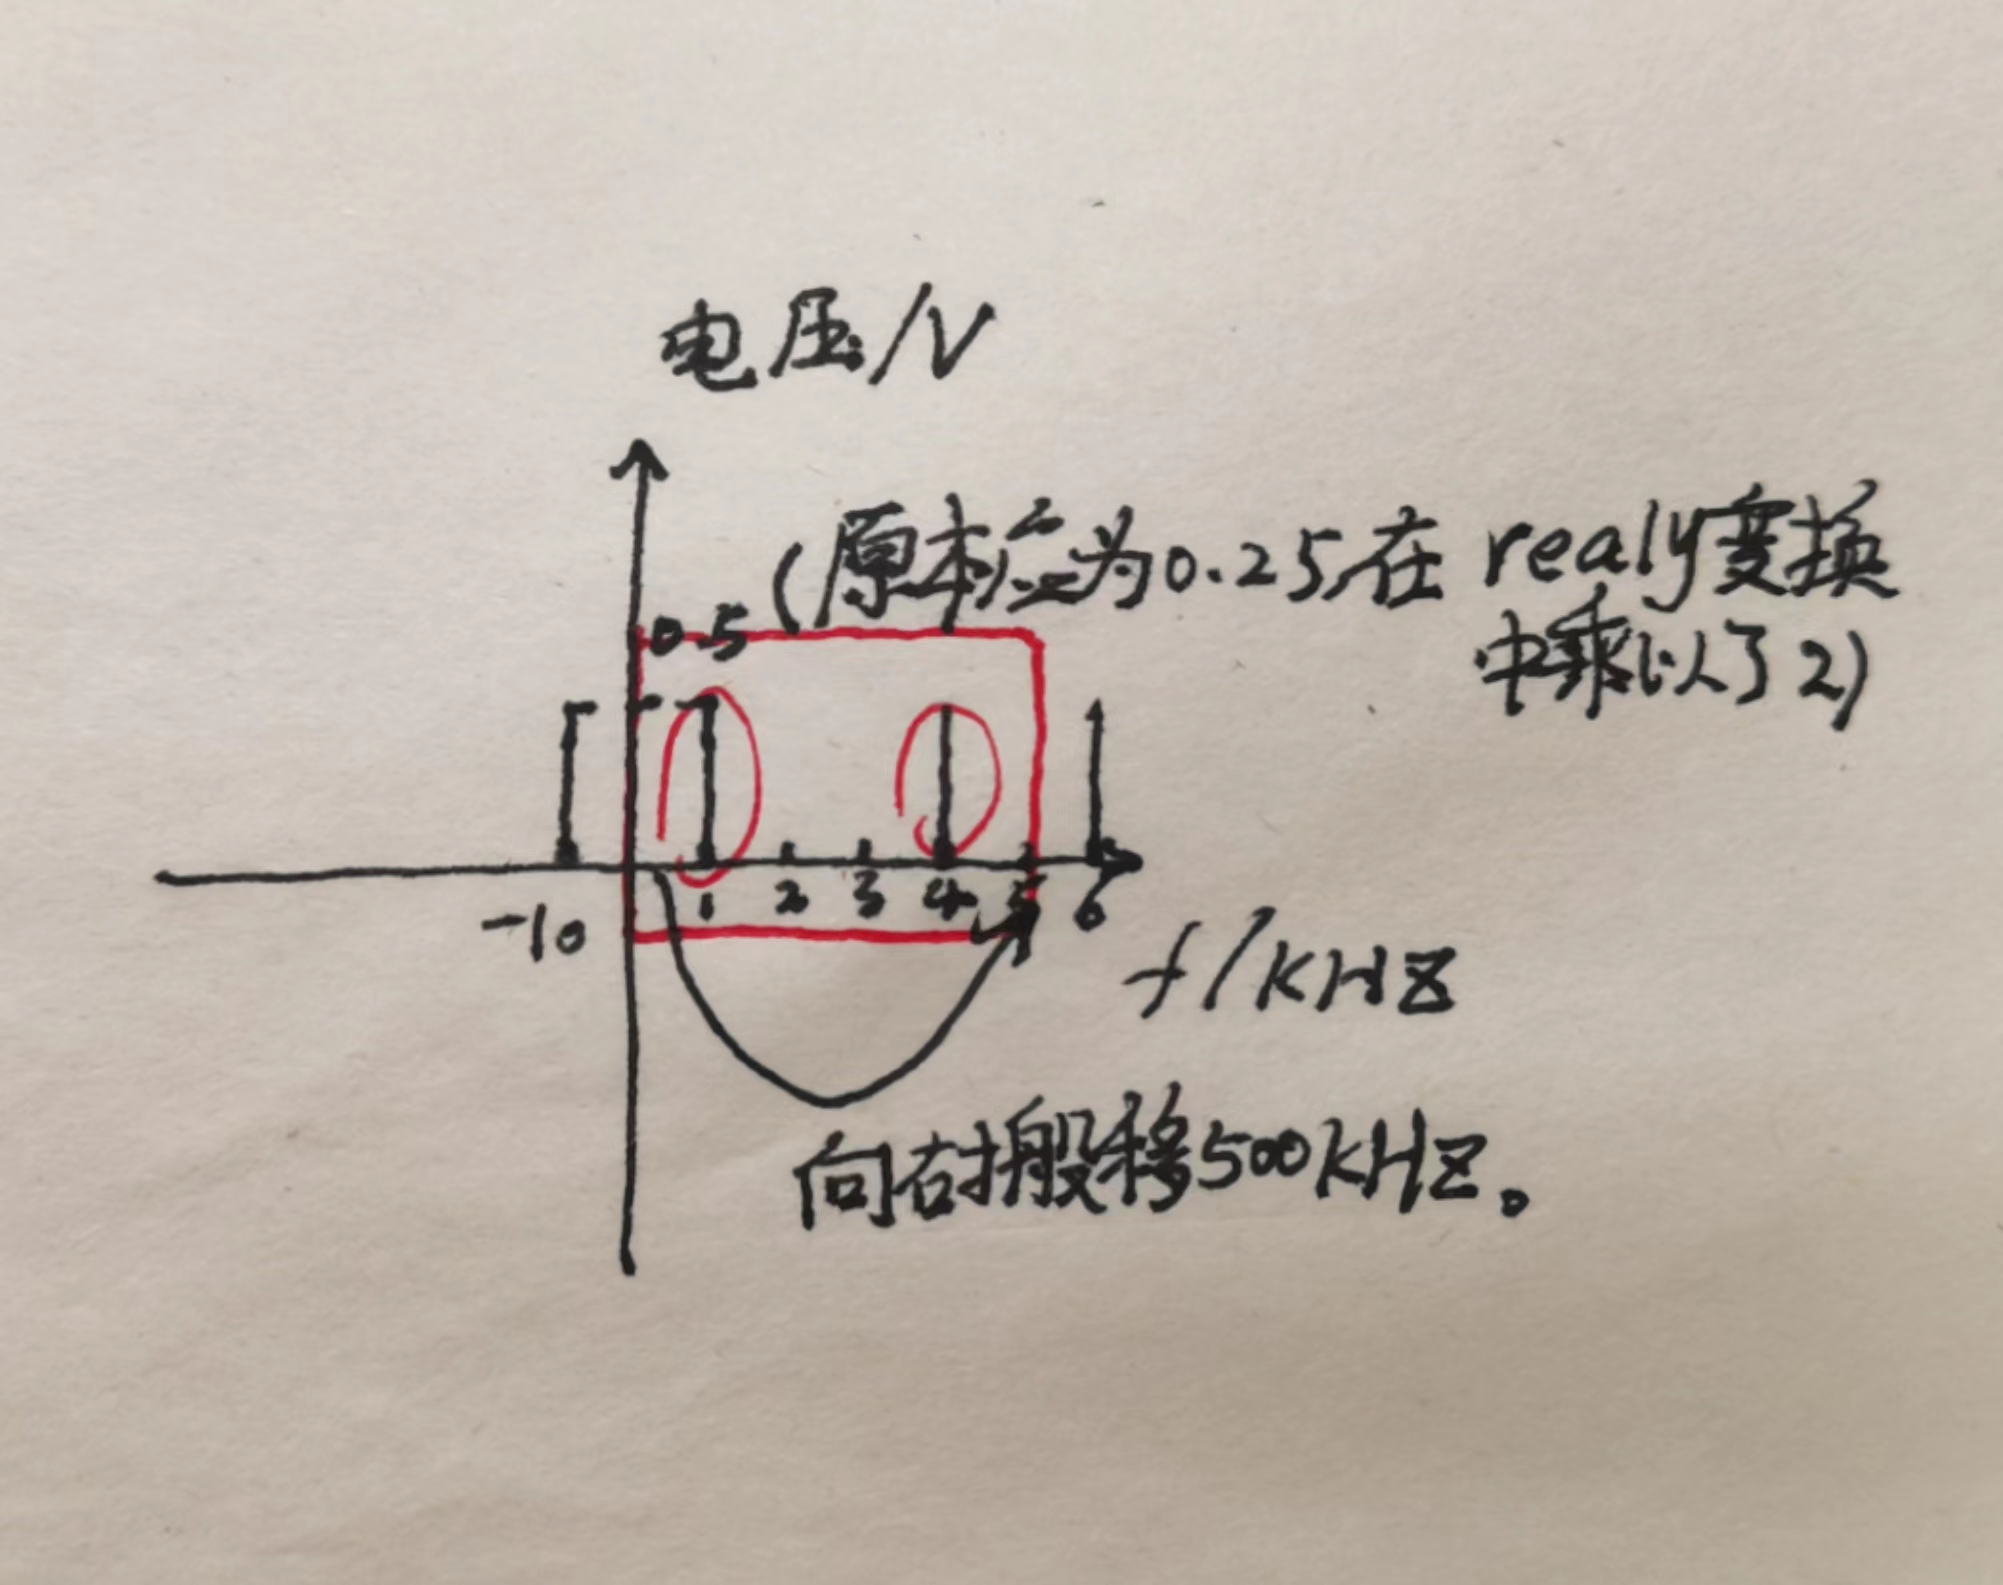 电压/V
(原本应为0.25,在realy变换
中乘以了2)
0.5
-1 0 1 2 3 4 5 6
f/KHZ
向右搬移500KHZ。